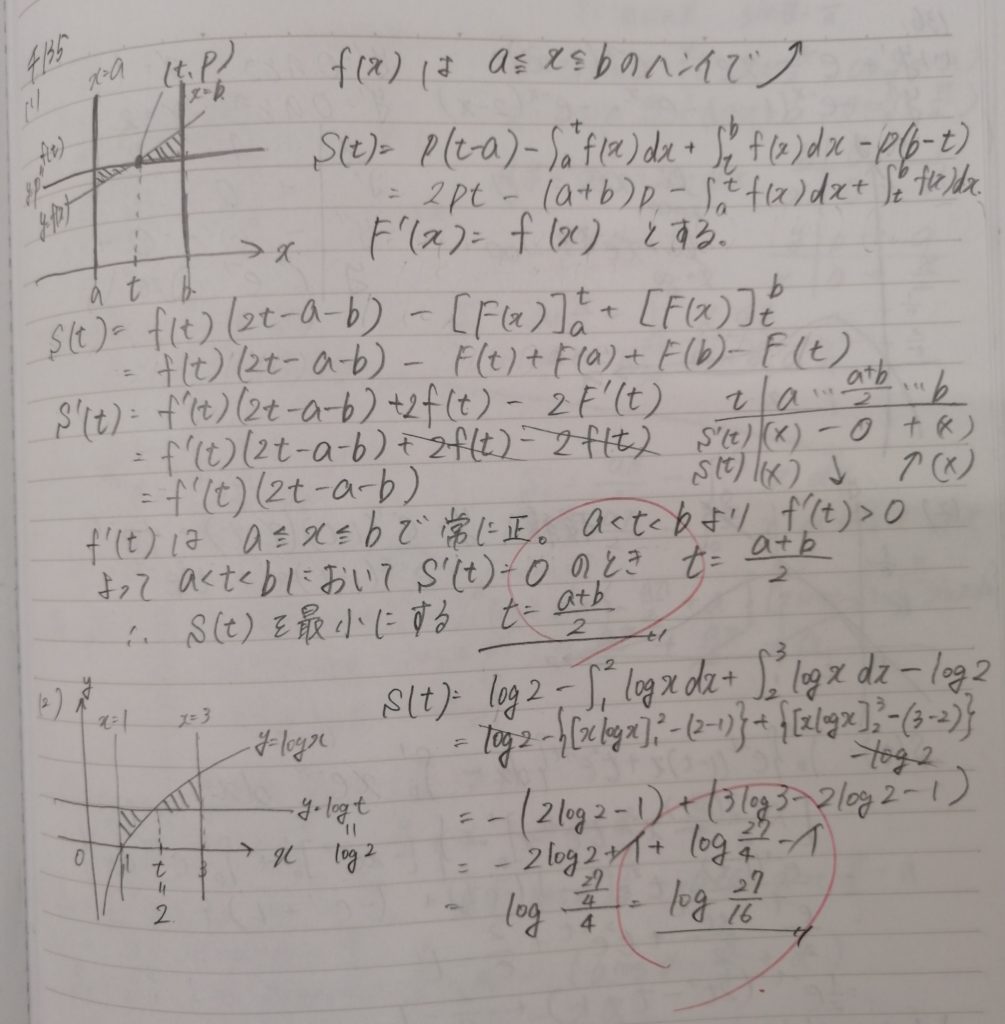 4135
(1)
x=a
(t, P)
x=b
f(x) は a≦x≦bのハンイで↗
f(t)
y=P
y=f(x)
x
a t b
S(t)= P(t-a) - ∫ₐᵗ f(x)dx + ∫ₜᵇ f(x)dx - P(b-t)
= 2Pt - (a+b)P - ∫ₐᵗ f(x)dx + ∫ₜᵇ f(x)dx.
F'(x) = f(x) とする.
S(t)= f(t)(2t-a-b) - [F(x)]ₐᵗ + [F(x)]ₜᵇ
= f(t)(2t-a-b) - F(t)+F(a)+F(b)-F(t)
S'(t)= f'(t)(2t-a-b)+2f(t)-2F'(t)
= f'(t)(2t-a-b)+2f(t)-2f(t)
= f'(t)(2t-a-b)
t | a … (a+b)/2 … b
S'(t) | (×) - 0 + (×)
S(t) | (×) ↓ ↑ (×)
f'(t)は a≦x≦bで常に正。 a<t<bより f'(t)>0
よって a<t<bにおいて S'(t)=0 のとき t=(a+b)/2
∴ S(t)を最小にする t=(a+b)/2
(2)
y
x=1 x=3
y=logx
y=logt
=
log2
0 1 t 3 x
=
2
S(t)= log2 - ∫₁² logx dx + ∫₂³ logx dx - log2
= log2 - {[xlogx]₁² - (2-1)} + {[xlogx]₂³ - (3-2)}
-log2
= - (2log2-1) + (3log3-2log2-1)
= -2log2+1+ log 27/4 - 1
= log (27/4)/4 = log 27/16